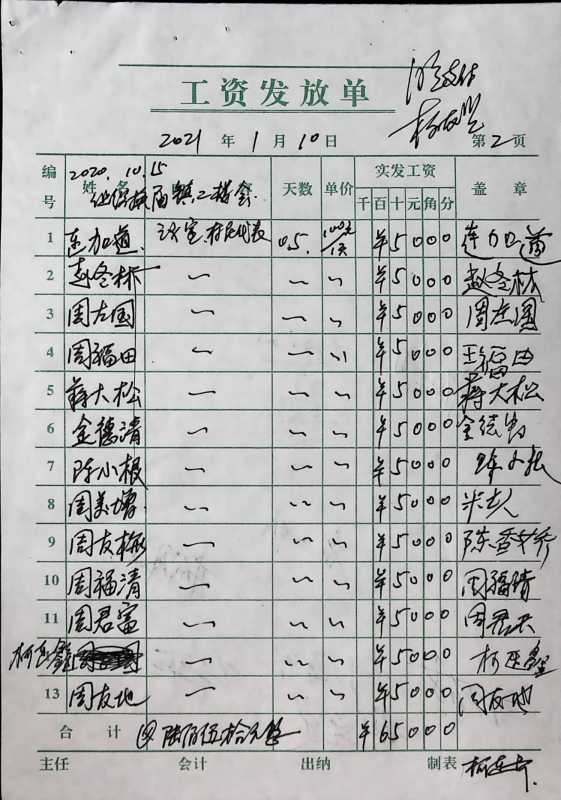 工资发放单
2021 年 1 月 10 日 第 2 页
编号 姓名 天数 单价 实发工资 盖章
千 百 十 元 角 分
2020.10.15
1 连加道 村民代表 0.5 100元/天 ¥5000 连加道
2 赵冬林 〃 〃 〃 ¥5000 赵冬林
3 周左国 〃 〃 〃 ¥5000 周左国
4 周福田 〃 〃 〃 ¥5000 王福田
5 蒋大松 〃 〃 〃 ¥5000 蒋大松
6 金德清 〃 〃 〃 ¥5000
7 陈小根 〃 〃 〃 ¥5000
8 周美 〃 〃 〃 ¥5000
9 周友梅 〃 〃 〃 ¥5000 陈香
10 周福清 〃 〃 〃 ¥5000 周福清
11 周君富 〃 〃 〃 ¥5000 周君
柯 〃 〃 〃 ¥5000 柯
13 周友地 〃 〃 〃 ¥5000 周友地
合计 陆佰伍拾元整 ¥65000
主任 会计 出纳 制表